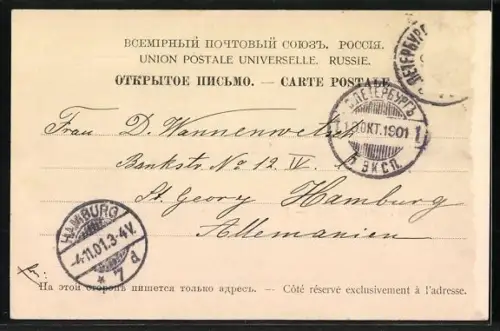 ВСЕМІРНЫЙ ПОЧТОВЫЙ СОЮЗЪ. РОССІЯ.
UNION POSTALE UNIVERSELLE. RUSSIE.
ОТКРЫТОЕ ПИСЬМО. — CARTE POSTALE
ПЕТЕРБУРГ
С.ПЕТЕРБУРГЪ
ОКТ.1901
1
1
П. ЭКСП.
Frau D. Wannenwetsch
Bankstr. No 12. IV.
St. Georg Hamburg
Allemanien
HAMBURG
4.11.01.3-4V.
* 7 d
На этой сторонѣ пишется только адресъ. — Côté réservé exclusivement à l'adresse.